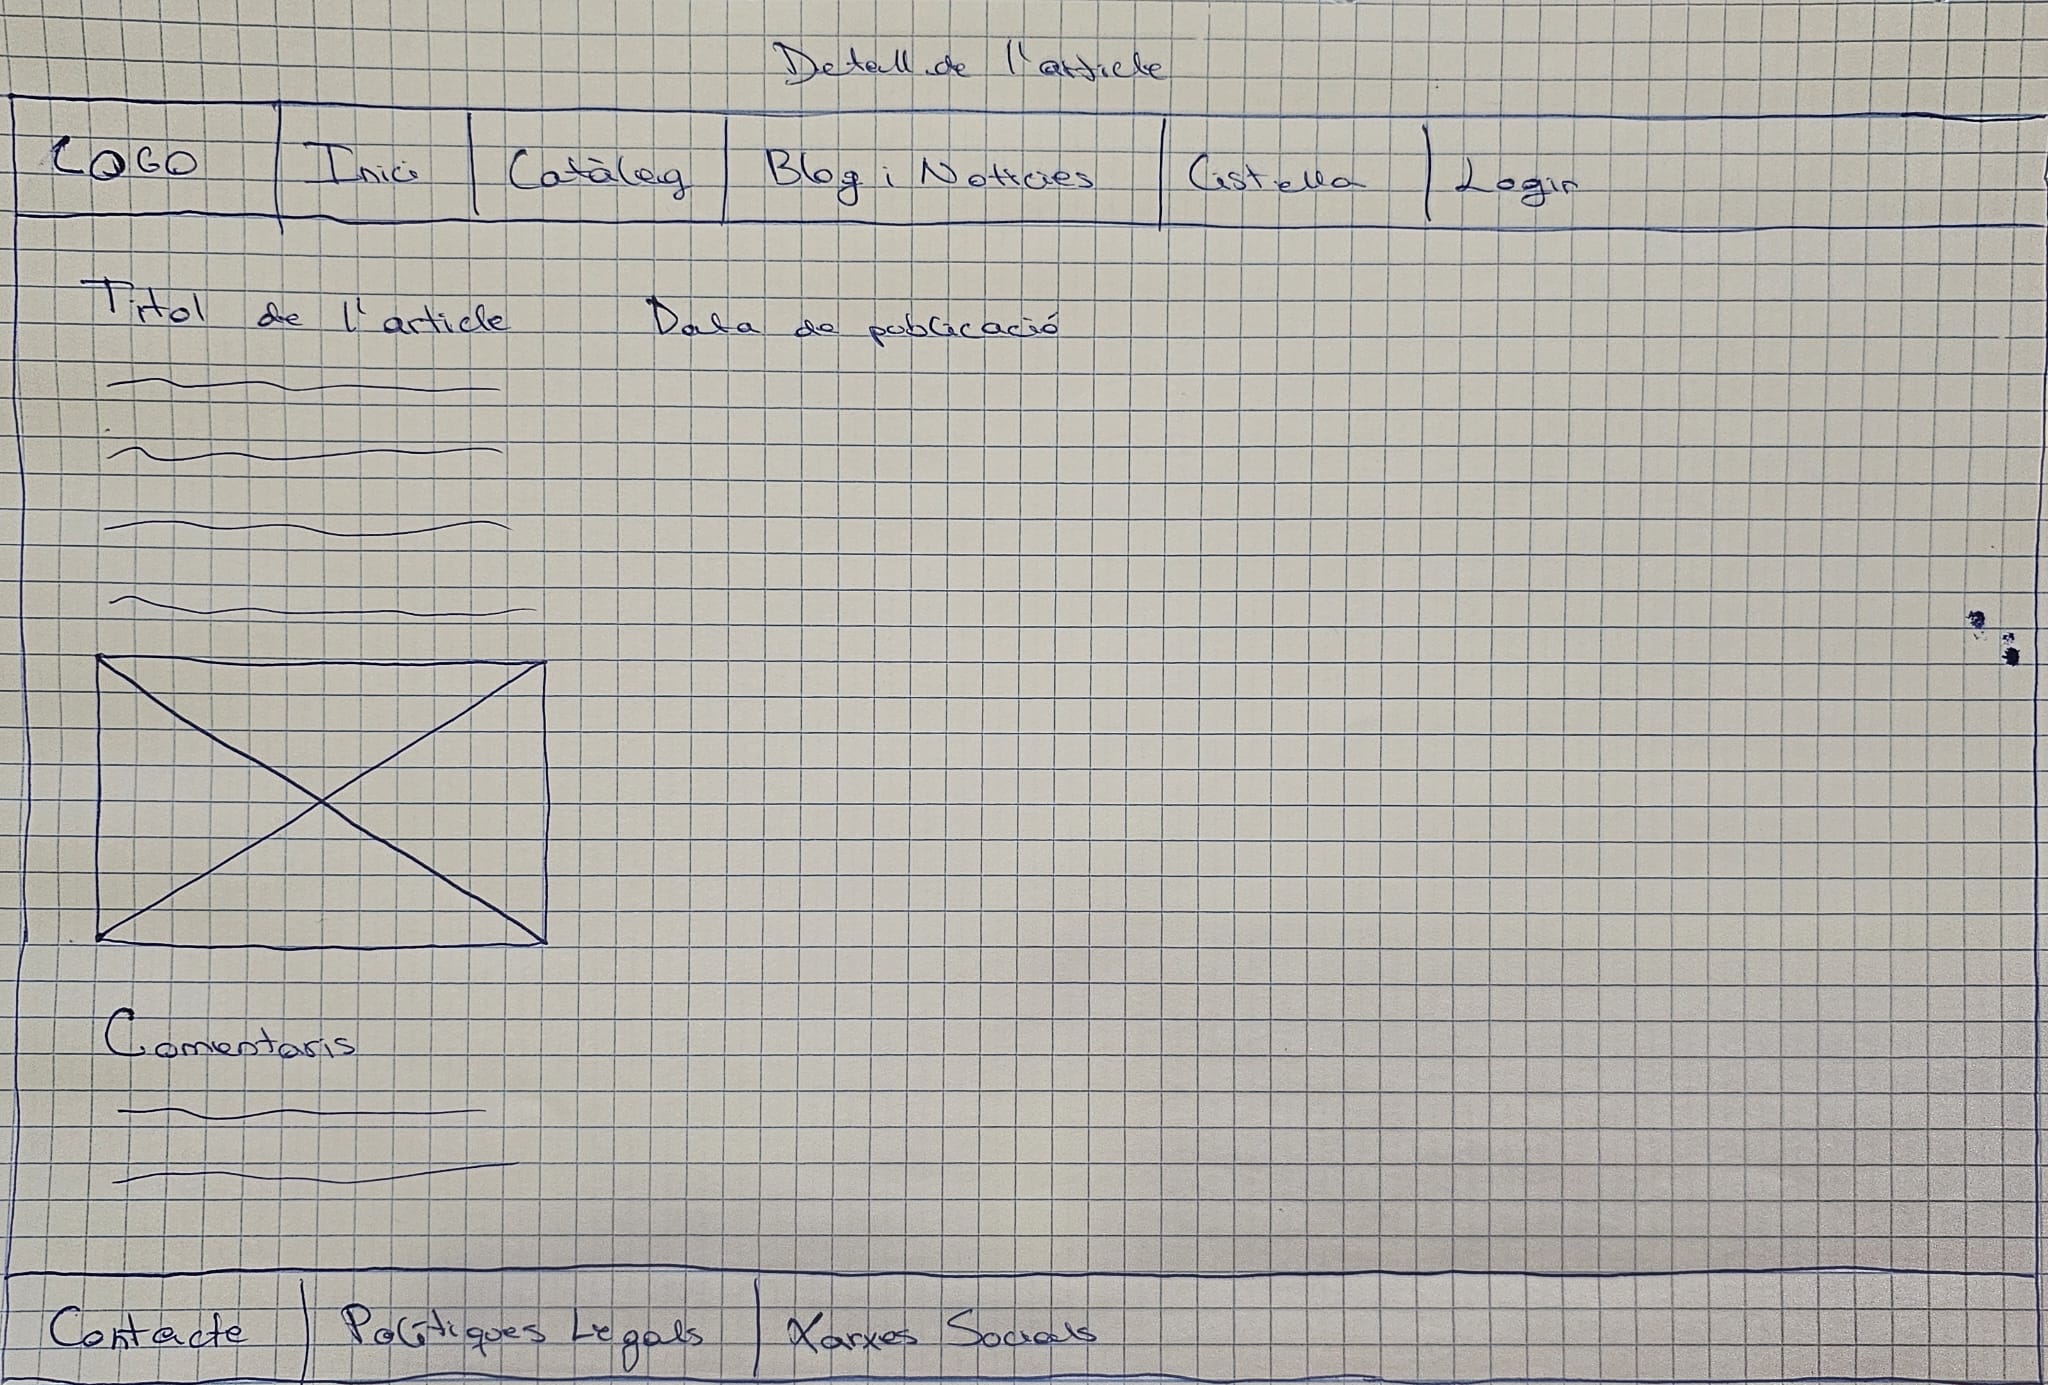 Detall de l'article
LOGO Inici Catàleg Blog i Notícies Cistella Login
Títol de l'article Data de publicació
Comentaris
Contacte Polítiques Legals Xarxes Socials